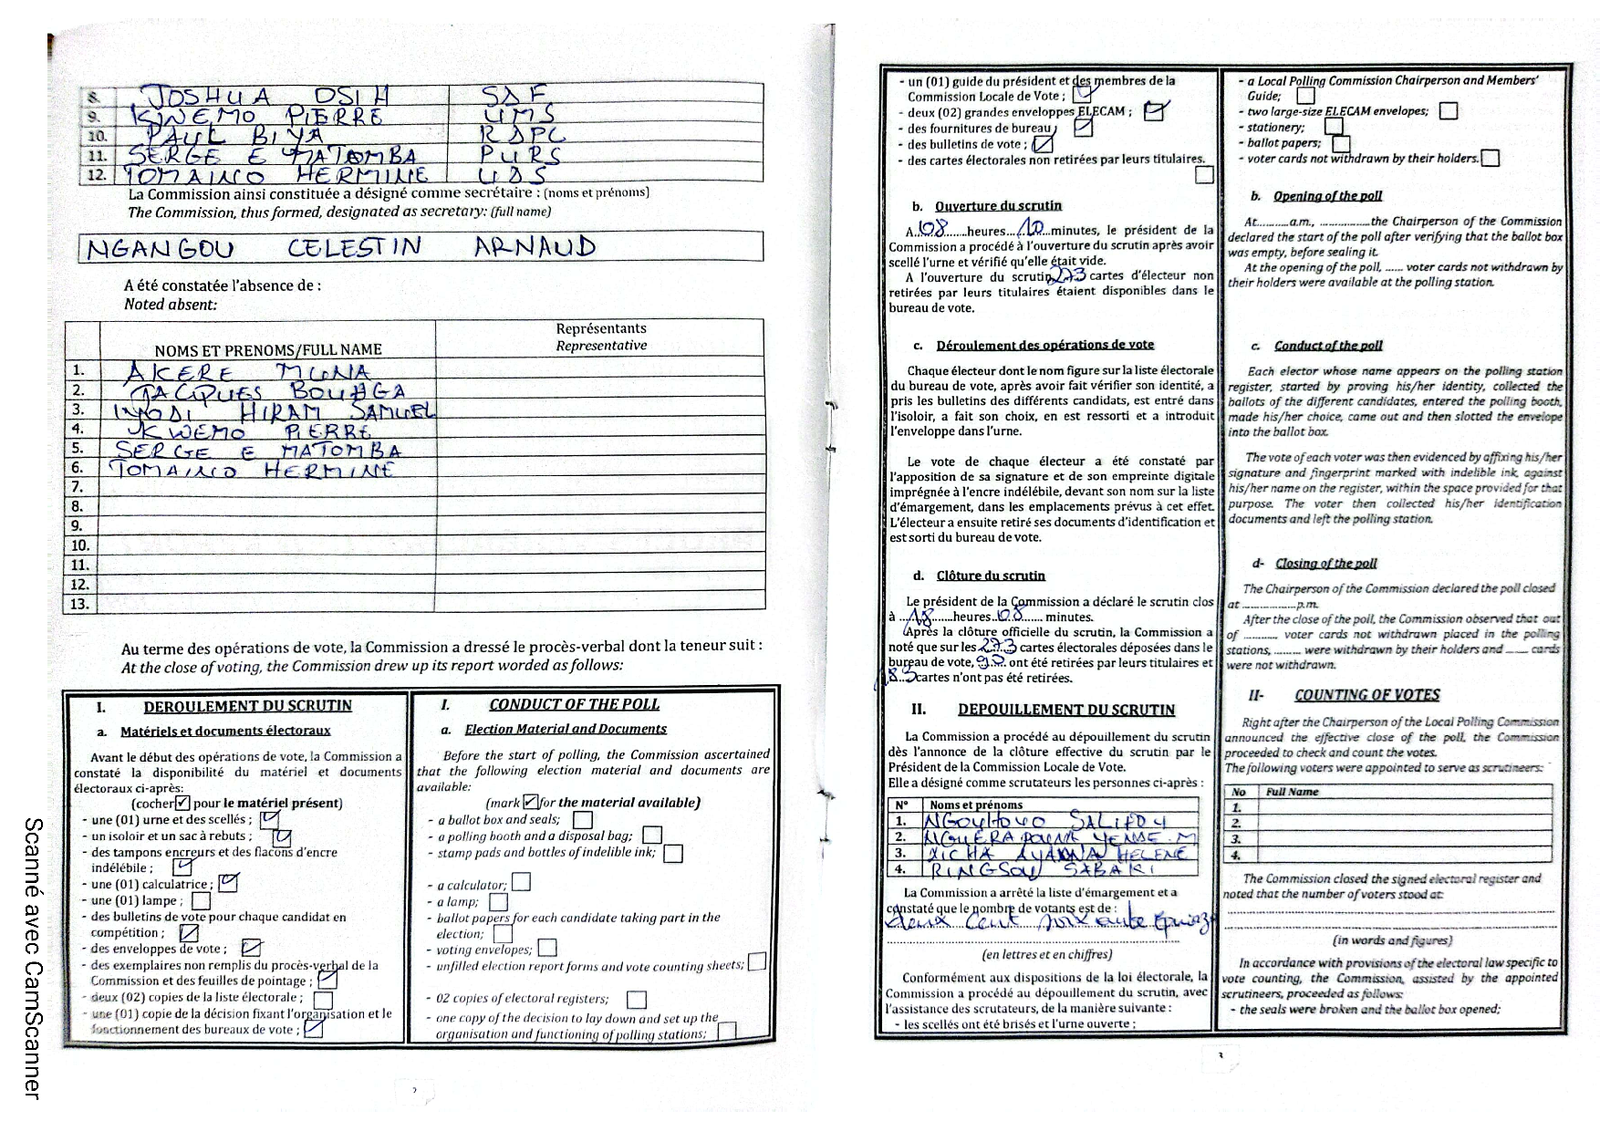 8. JOSHUA OSIH SDF
9. KWEMO PIERRE UMS
10. PAUL BIYA RDPC
11. SERGE E MATOMBA PURS
12. TOMAINO HERMINE UDS
La Commission ainsi constituée a désigné comme secrétaire : (noms et prénoms)
The Commission, thus formed, designated as secretary: (full name)
NGANGOU CELESTIN ARNAUD
A été constatée l'absence de :
Noted absent:
NOMS ET PRENOMS/FULL NAME
Représentants
Representative
1. AKERE MUNA
2. JACQUES BOUHGA
3. INYODI HIRAM SAMUEL
4. KWEMO PIERRE
5. SERGE E MATOMBA
6. TOMAINO HERMINE
7.
8.
9.
10.
11.
12.
13.
Au terme des opérations de vote, la Commission a dressé le procès-verbal dont la teneur suit :
At the close of voting, the Commission drew up its report worded as follows:
I. DEROULEMENT DU SCRUTIN
a. Matériels et documents électoraux
Avant le début des opérations de vote, la Commission a
constaté la disponibilité du matériel et documents
électoraux ci-après:
(cocher ☑ pour le matériel présent)
- une (01) urne et des scellés ;
- un isoloir et un sac à rebuts ;
- des tampons encreurs et des flacons d'encre
indélébile ;
- une (01) calculatrice ;
- une (01) lampe ;
- des bulletins de vote pour chaque candidat en
compétition ;
- des enveloppes de vote ;
- des exemplaires non remplis du procès-verbal de la
Commission et des feuilles de pointage ;
- deux (02) copies de la liste électorale ;
- une (01) copie de la décision fixant l'organisation et le
fonctionnement des bureaux de vote ;
I. CONDUCT OF THE POLL
a. Election Material and Documents
Before the start of polling, the Commission ascertained
that the following election material and documents are
available:
(mark ☑ for the material available)
- a ballot box and seals;
- a polling booth and a disposal bag;
- stamp pads and bottles of indelible ink;
- a calculator;
- a lamp;
- ballot papers for each candidate taking part in the
election;
- voting envelopes;
- unfilled election report forms and vote counting sheets;
- 02 copies of electoral registers;
- one copy of the decision to lay down and set up the
organisation and functioning of polling stations;
2
Scanné avec CamScanner
- un (01) guide du président et des membres de la
Commission Locale de Vote ;
- deux (02) grandes enveloppes ELECAM ;
- des fournitures de bureau
- des bulletins de vote ;
- des cartes électorales non retirées par leurs titulaires.
b. Ouverture du scrutin
A..08.......heures...10...minutes, le président de la
Commission a procédé à l'ouverture du scrutin après avoir
scellé l'urne et vérifié qu'elle était vide.
A l'ouverture du scrutin, 273 cartes d'électeur non
retirées par leurs titulaires étaient disponibles dans le
bureau de vote.
c. Déroulement des opérations de vote
Chaque électeur dont le nom figure sur la liste électorale
du bureau de vote, après avoir fait vérifier son identité, a
pris les bulletins des différents candidats, est entré dans
l'isoloir, a fait son choix, en est ressorti et a introduit
l'enveloppe dans l'urne.
Le vote de chaque électeur a été constaté par
l'apposition de sa signature et de son empreinte digitale
imprégnée à l'encre indélébile, devant son nom sur la liste
d'émargement, dans les emplacements prévus à cet effet.
L'électeur a ensuite retiré ses documents d'identification et
est sorti du bureau de vote.
d. Clôture du scrutin
Le président de la Commission a déclaré le scrutin clos
à ...18.......heures..08...... minutes.
Après la clôture officielle du scrutin, la Commission a
noté que sur les 273 cartes électorales déposées dans le
bureau de vote, 90 ont été retirées par leurs titulaires et
183 cartes n'ont pas été retirées.
II. DEPOUILLEMENT DU SCRUTIN
La Commission a procédé au dépouillement du scrutin
dès l'annonce de la clôture effective du scrutin par le
Président de la Commission Locale de Vote.
Elle a désigné comme scrutateurs les personnes ci-après :
N° Noms et prénoms
1. SALIFOU
2.
3. HELENE
4. RINGSOU SABAKI
La Commission a arrêté la liste d'émargement et a
constaté que le nombre de votants est de :
deux Cent soixante
(en lettres et en chiffres)
Conformément aux dispositions de la loi électorale, la
Commission a procédé au dépouillement du scrutin, avec
l'assistance des scrutateurs, de la manière suivante :
- les scellés ont été brisés et l'urne ouverte ;
- a Local Polling Commission Chairperson and Members'
Guide;
- two large-size ELECAM envelopes;
- stationery;
- ballot papers;
- voter cards not withdrawn by their holders.
b. Opening of the poll
At..........a.m., ..............the Chairperson of the Commission
declared the start of the poll after verifying that the ballot box
was empty, before sealing it.
At the opening of the poll, ...... voter cards not withdrawn by
their holders were available at the polling station.
c. Conduct of the poll
Each elector whose name appears on the polling station
register, started by proving his/her identity, collected the
ballots of the different candidates, entered the polling booth,
made his/her choice, came out and then slotted the envelope
into the ballot box.
The vote of each voter was then evidenced by affixing his/her
signature and fingerprint marked with indelible ink, against
his/her name on the register, within the space provided for that
purpose. The voter then collected his/her identification
documents and left the polling station.
d- Closing of the poll
The Chairperson of the Commission declared the poll closed
at ................p.m.
After the close of the poll, the Commission observed that out
of .......... voter cards not withdrawn placed in the polling
stations, ......... were withdrawn by their holders and ...... cards
were not withdrawn.
II- COUNTING OF VOTES
Right after the Chairperson of the Local Polling Commission
announced the effective close of the poll, the Commission
proceeded to check and count the votes.
The following voters were appointed to serve as scrutineers:
No Full Name
1.
2.
3.
4.
The Commission closed the signed electoral register and
noted that the number of voters stood at:
(in words and figures)
In accordance with provisions of the electoral law specific to
vote counting, the Commission, assisted by the appointed
scrutineers, proceeded as follows:
- the seals were broken and the ballot box opened;
3